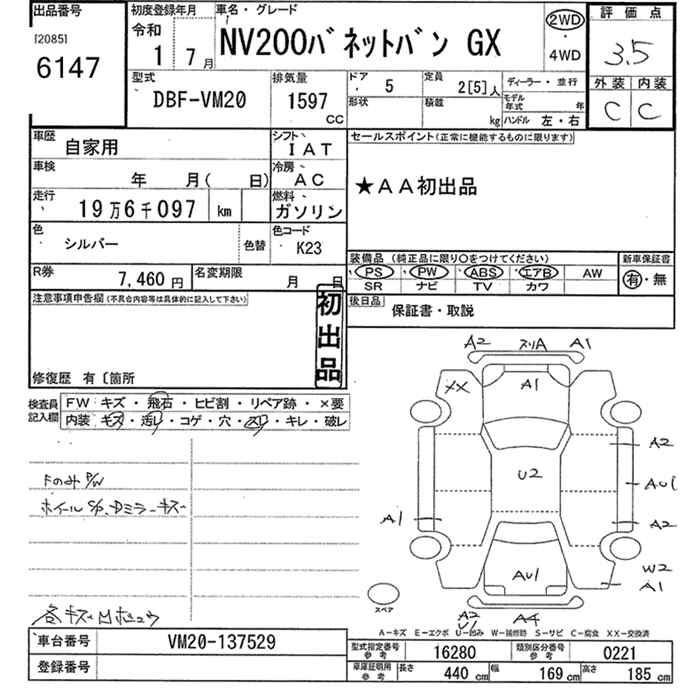 出品番号
[2085]
6147
初度登録年月
令和
1 7月
車名・グレード
NV200バネットバン GX
2WD
・
4WD
評価点
3.5
外装 内装
C C
型式
DBF-VM20
排気量
1597
CC
ドア
5
定員
2[5]人
ディーラー・並行
形状
積載
kg
モデル年式
年
ハンドル 左・右
車歴
自家用
シフト
IAT
車検
年 月( 日)
冷房
AC
走行
19万6千097 km
燃料
ガソリン
色
シルバー
色替
色コード
K23
R券
7,460円
名変期限
月 日
セールスポイント(正常に機能するものに限ります)
★AA初出品
装備品(純正品に限り○をつけてください)
PS PW ABS エアB AW
SR ナビ TV カワ
新車保証書
有・無
後日品
保証書・取説
注意事項申告欄(不具合内容等は具体的に記入して下さい)
初出品
修復歴 有〔箇所
検査員記入欄
FW キズ・飛石・ヒビ割・リペア跡・×要
内装 キズ・汚レ・コゲ・穴・スレ・キレ・破レ
FのみP/W
ホイールC/P、Dミラーキズ
各キズ凹
A2 スリA A1
XX A1
A2
U2
AU1
A1
A2
AU1
W2
A1
スペア
A2
U1
A4
A-キズ E-エクボ U-凹み W-補修跡 S-サビ C-腐食 XX-交換済
車台番号
VM20-137529
登録番号
型式指定番号
参考
16280
類別区分番号
参考
0221
車庫証明用
参考
長さ
440 cm
幅
169 cm
高さ
185 cm